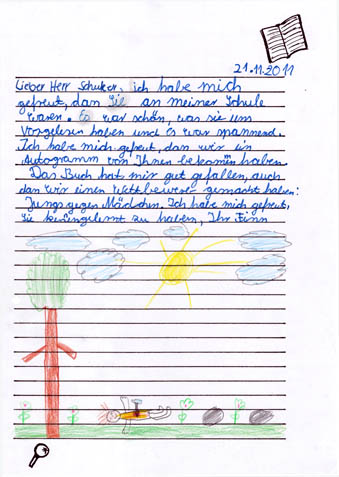 21.11.2011
Lieber Herr Schuker, ich habe mich
gefreut, dan Sie an meiner Schule
waren. Es war schön, was sie uns
vorgelesen haben und es war spannend.
Ich habe mich gefreut, dan wir ein
Autogramm von Ihnen bekomen haben.
Das Buch hat mir gut gefallen, auch
dan wir einen wettbewerb gemacht haben:
Jungs gegen Mädchen. Ich habe mich gefreut,
Sie kennengelernt zu haben, Ihr Finn